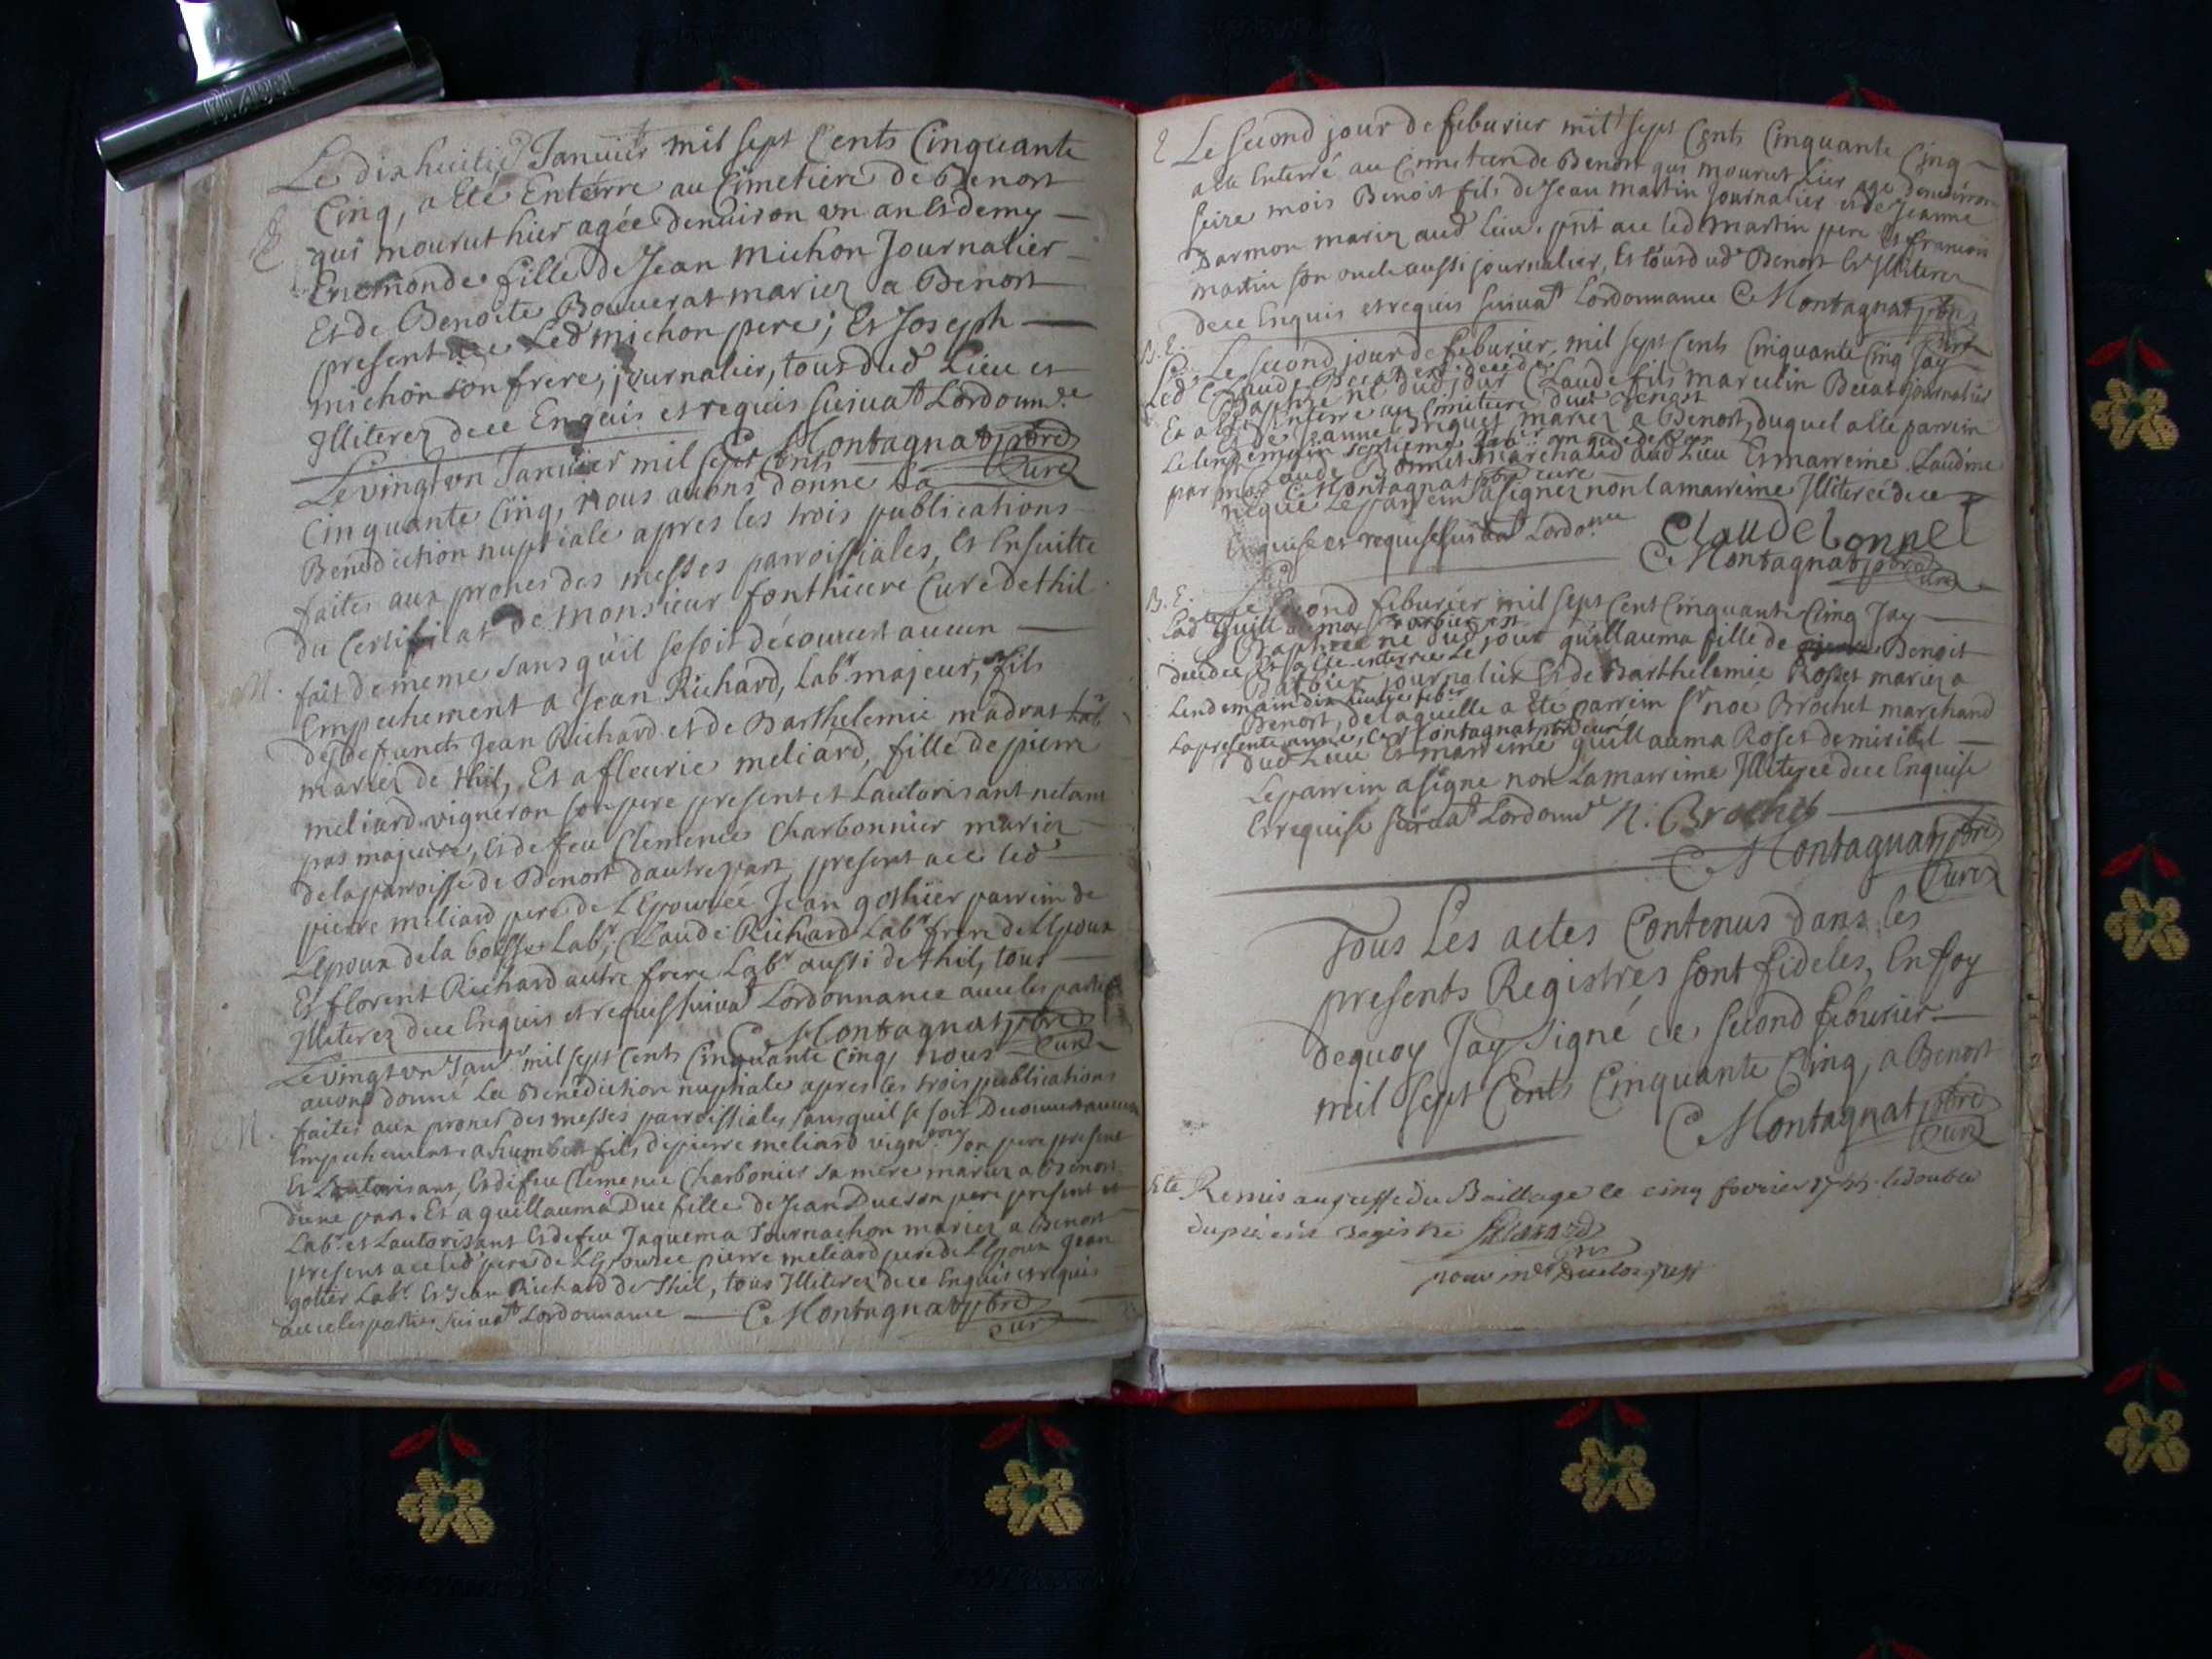 Le dixhuitie Januier mil sept Cents Cinquante
Cinq, a Eté Enterre au Cimetiere de Benost
E qui mourut hier agée denuiron un an Et demy
Enemonde fille de Jean Michon Journalier
Et de Benoite Bouuerat mariez a Benost
present ace Led michon pere; Et Joseph
michon son frere, journalier, tous dud Lieu et
Illiterez dece Enquis et requis suiuat Lordonnce
C Montagnat pbre
Curé
Le vingt vn Januier mil sept Cents
Cinquante Cinq, nous auons donné La
Benediction nuptiale apres les trois publications
faites aux prones des messes parroissiales, Et Ensuitte
du Certificat de monsieur fonthieure Curé de thil
M. fait de meme sans qu'il se soit découuert aucun
Empechement a Jean Richard, Labr majeur, fils
des defuncts Jean Richard et de Barthelemie madras Lab
mariez de thil, Et a fleurie meliard, fille de pierre
meliard vigneron son pere present et Lautorisant netant
pas majeure, Et de feu Clemence Charbonnier mariez
de la parroisse de Benost dautre part, present ace led
pierre meliard pere de LEpousée Jean gothier parrein de
LEpoux de la boisse Labr, Claude Richard Labr frere de LEpoux
Et florent Richard autre frere Labr aussi de thil, tous
Illiterez dece Enquis et requis suiuat Lordonnance auec les parties
C Montagnat pbre
Curé
Le vingt vn Janr mil sept Cents Cinquante Cinq, nous
auons donné La Benediction nuptiale apres les trois publications
faites aux prones des messes parroissiales sans quil se soit Decouuert aucun
M. Empechement a humbert fils de pierre meliard vign son pere present
Et Lautorisant, Et de feu Clemence Charbonier sa mere mariez a Benost
dune part. Et a guillauma Duc fille de Jean Duc son pere present et
Labr et Lautorisant Et de feu Jaquema Tournachon mariez a Benost
present ace led pere de LEpousée pierre meliard pere de LEpoux Jean
gotier Labr Et Jean Richard de thil, tous Illiterez dece Enquis et requis
auec les parties suiuat Lordonnance C Montagnat pbre
curé
E Le second jour de feburier mil sept Cents Cinquante Cinq
a Ete Enterré au Cimetiere de Benost qui mourut hier age denuiron
seize mois Benoist fils de Jean martin Journalier et de Jeanne
Darmon mariez aud Lieu, pnt ace led martin pere Et francois
martin son oncle aussi journalier, Et tous dud Benost Et Illiterez
dece Enquis et requis suiuat Lordonnance C Montagnat pbre
curé
B. E.
Le second jour de feburier, mil sept Cents Cinquante Cinq Jay
Led Claude Becat est decede
Baptizé né dud jour Claude fils marcelin Becat journalier
Et a Eté Enterré au Cimetiere dud Benost
Et de Jeanne Briquet mariez a Benost, duquel a Ete parrein
Le lendemain septieme
Claude Bonnet marchand aud Lieu Et marreine Laud
par moy C Montagnat pbre curé
Le parrein a signez non la marreine Illiterée dece
Enquise et requise suiuat Lordonce
Claude bonnet
C Montagnat pbre
Curé
B. E.
Le second feburier mil sept Cent Cinquante Cinq Jay
Lad Guillauma Barbier est
Baptizée née dud jour guillauma fille de Benoit
decedée Et a Ete enterrée Le
Barbier journalier Et de Barthelemie Rosset mariez a
Lendemain
Benost, delaquelle a Ete parrein Sr noé Brochet marchand
La presente année, C Montagnat pbre curé
dud Lieu Et marreine guillauma Roset de miribel
Le parrein a signé non La marreine Illiterée dece Enquise
Et requise suiuat Lordonnce N. Brochet
C Montagnat pbre
Curé
Tous Les actes Contenus dans les
presents Registres sont fideles, En foy
dequoy Jay signé ce second feburier
mil sept Cents Cinquante Cinq, a Benost
C Montagnat pbre
Curé
Eté Remis au greffe du Baillage le cinq fevrier 1755 le double
du présent registre